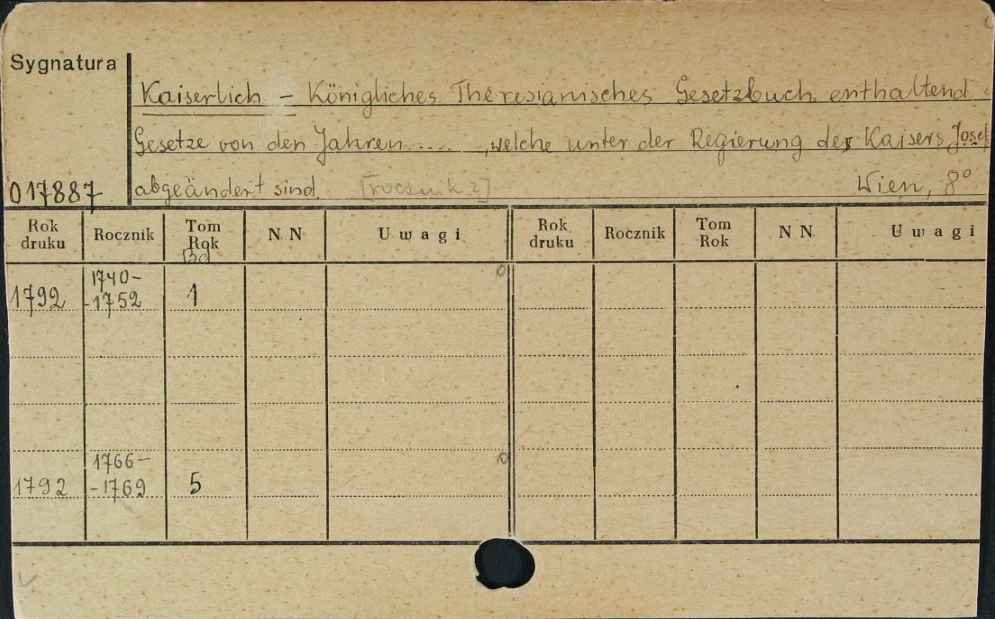 Sygnatura
Kaiserlich - Königliches Theresianisches Gesetzbuch enthaltend
Gesetze von den Jahren ..... , welche unter der Regierung des Kaisers Josef
017887 abgeändert sind. [rocznik z] Wien, 8°
Rok druku Rocznik Tom Rok Bd N N Uwagi Rok druku Rocznik Tom Rok N N Uwagi
1792 1740-
-1752 1
1792 1766-
-1769 5